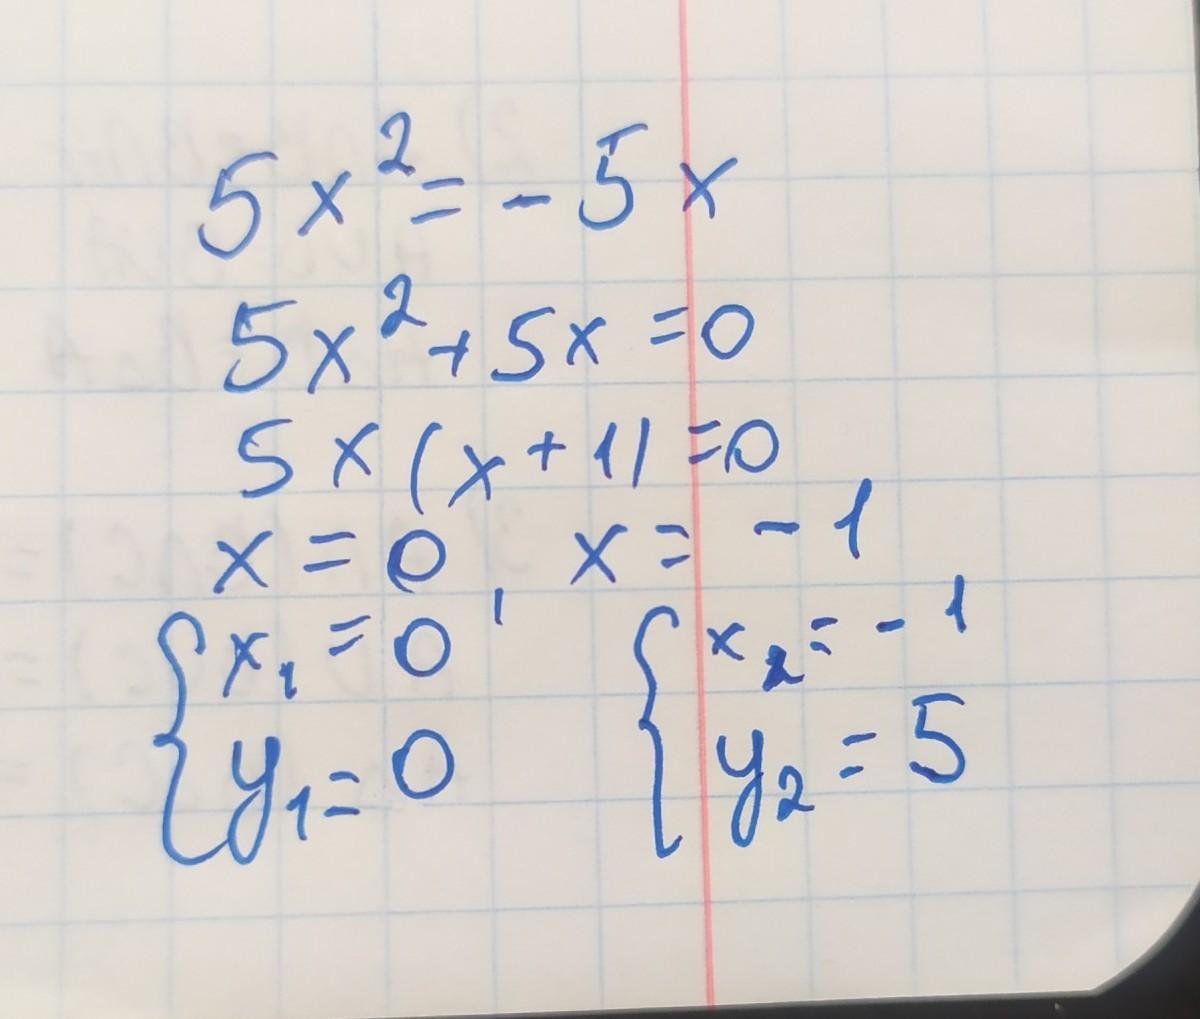 5x² = - 5x
5x² + 5x = 0
5x (x + 1) = 0
x = 0, x = - 1
{ x₁ = 0 { x₂ = - 1
y₁ = 0 y₂ = 5